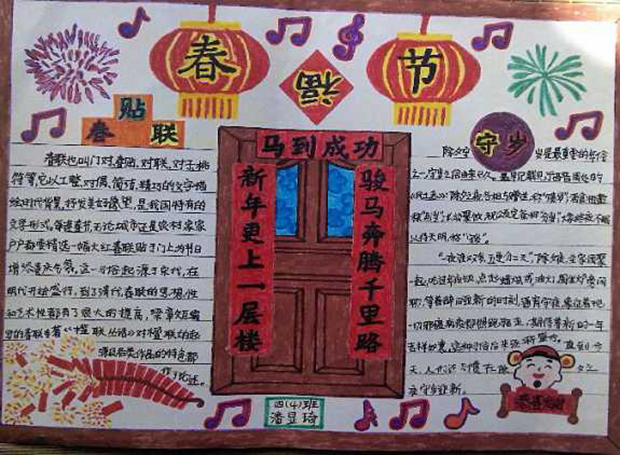 春 节
福
贴
春 联
春联也叫门对、春贴、对联、对子、桃
符等,它以工整、对偶、简洁、精巧的文字描
绘时代背景,抒发美好愿望,是我国特有的
文学形式。每逢春节,无论城市还是农村,家家
户户都要精选一幅大红春联贴于门上,为节日
增添喜庆气氛。这一习俗起源于宋代,在
明代开始盛行,到了清代,春联的思想性
和艺术性都有了很大的提高,梁章矩编
写的春联专著《楹联丛话》对楹联的起
源及各类作品的特色都
作了论述。
马到成功
新年更上一层楼
骏马奔腾千里路
守岁
除夕守 岁是最重要的
之一,守岁之俗由来已久。最早记载见于
待天明,称
除夕
一起吃过年夜饭,点起蜡烛或油灯,围坐炉旁闲
聊,等着辞旧迎新的时刻,通宵守夜,象征着把
一切邪瘟病疫照跑驱走,期待着新的一年
吉祥如意。
天,人们还习惯在除 夕之
夜守岁迎新。
四(4)班
潘昱琦